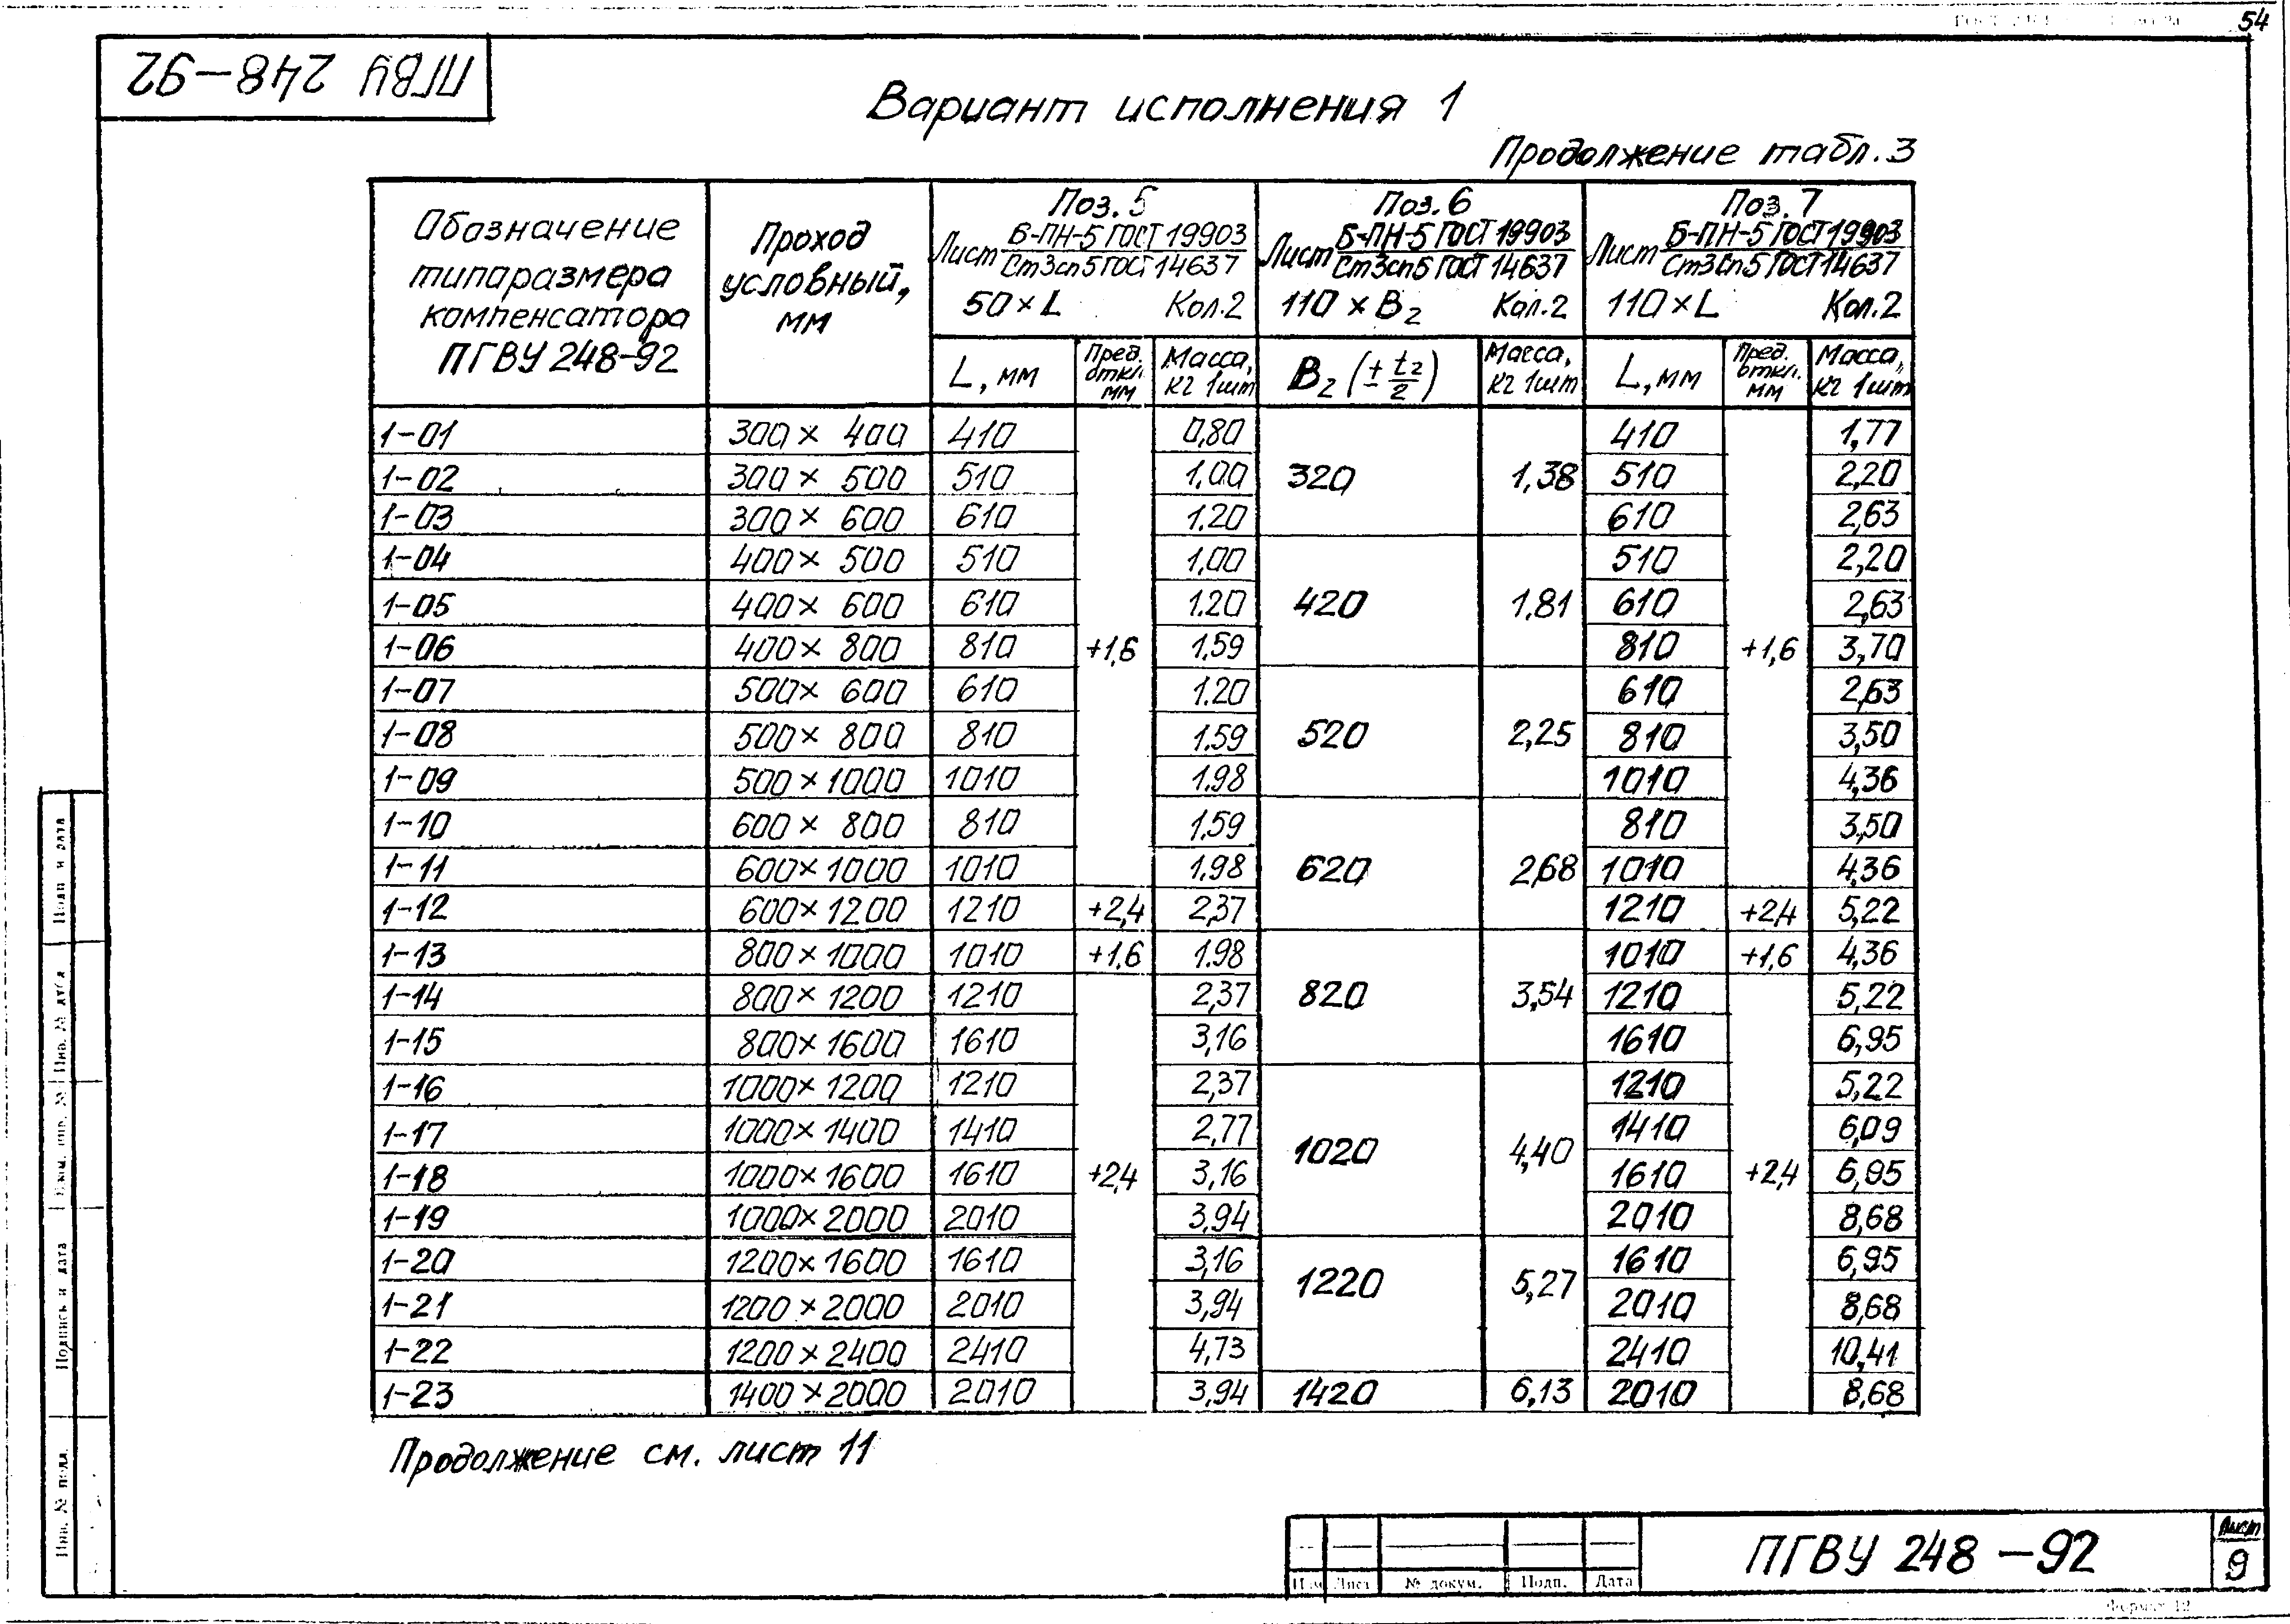 54
ПГВУ 248-92
Вариант исполнения 1
Продолжение табл.3
Обозначение типаразмера компенсатора ПГВУ 248-92
Проход условный, мм
Поз. 5
Лист Б-ПН-5 ГОСТ 19903 / Ст3сп5 ГОСТ 14637
50 × L Кол.2
Поз. 6
Лист Б-ПН-5 ГОСТ 19903 / Ст3сп5 ГОСТ 14637
110 × B2 Кол.2
Поз. 7
Лист Б-ПН-5 ГОСТ 19903 / Ст3сп5 ГОСТ 14637
110 × L Кол.2
L, мм Пред. откл. мм Масса, кг 1шт B2 (± t2/2) Масса, кг 1шт L, мм Пред. откл. мм Масса, кг 1шт
1-01 300 × 400 410 0,80 410 1,77
1-02 300 × 500 510 1,00 320 1,38 510 2,20
1-03 300 × 600 610 1.20 610 2,63
1-04 400 × 500 510 1,00 510 2,20
1-05 400 × 600 610 1.20 420 1,81 610 2,63
1-06 400 × 800 810 +1,6 1.59 810 +1,6 3,70
1-07 500 × 600 610 1.20 610 2,63
1-08 500 × 800 810 1.59 520 2,25 810 3,50
1-09 500 × 1000 1010 1.98 1010 4,36
1-10 600 × 800 810 1.59 810 3,50
1-11 600 × 1000 1010 1.98 620 2,68 1010 4,36
1-12 600 × 1200 1210 +2,4 2,37 1210 +2,4 5,22
1-13 800 × 1000 1010 +1,6 1.98 1010 +1,6 4,36
1-14 800 × 1200 1210 2,37 820 3,54 1210 5,22
1-15 800 × 1600 1610 3,16 1610 6,95
1-16 1000 × 1200 1210 2,37 1210 5,22
1-17 1000 × 1400 1410 2,77 1020 4,40 1410 6,09
1-18 1000 × 1600 1610 +2,4 3,16 1610 +2,4 6,95
1-19 1000 × 2000 2010 3,94 2010 8,68
1-20 1200 × 1600 1610 3,16 1610 6,95
1-21 1200 × 2000 2010 3,94 1220 5,27 2010 8,68
1-22 1200 × 2400 2410 4,73 2410 10,41
1-23 1400 × 2000 2010 3,94 1420 6,13 2010 8,68
Продолжение см. лист 11
Подп и дата
Инв. №
Подпись и дата
Инв. № подл.
Изм Лист № докум. Подп. Дата
ПГВУ 248 - 92
Лист
9
Формат 12